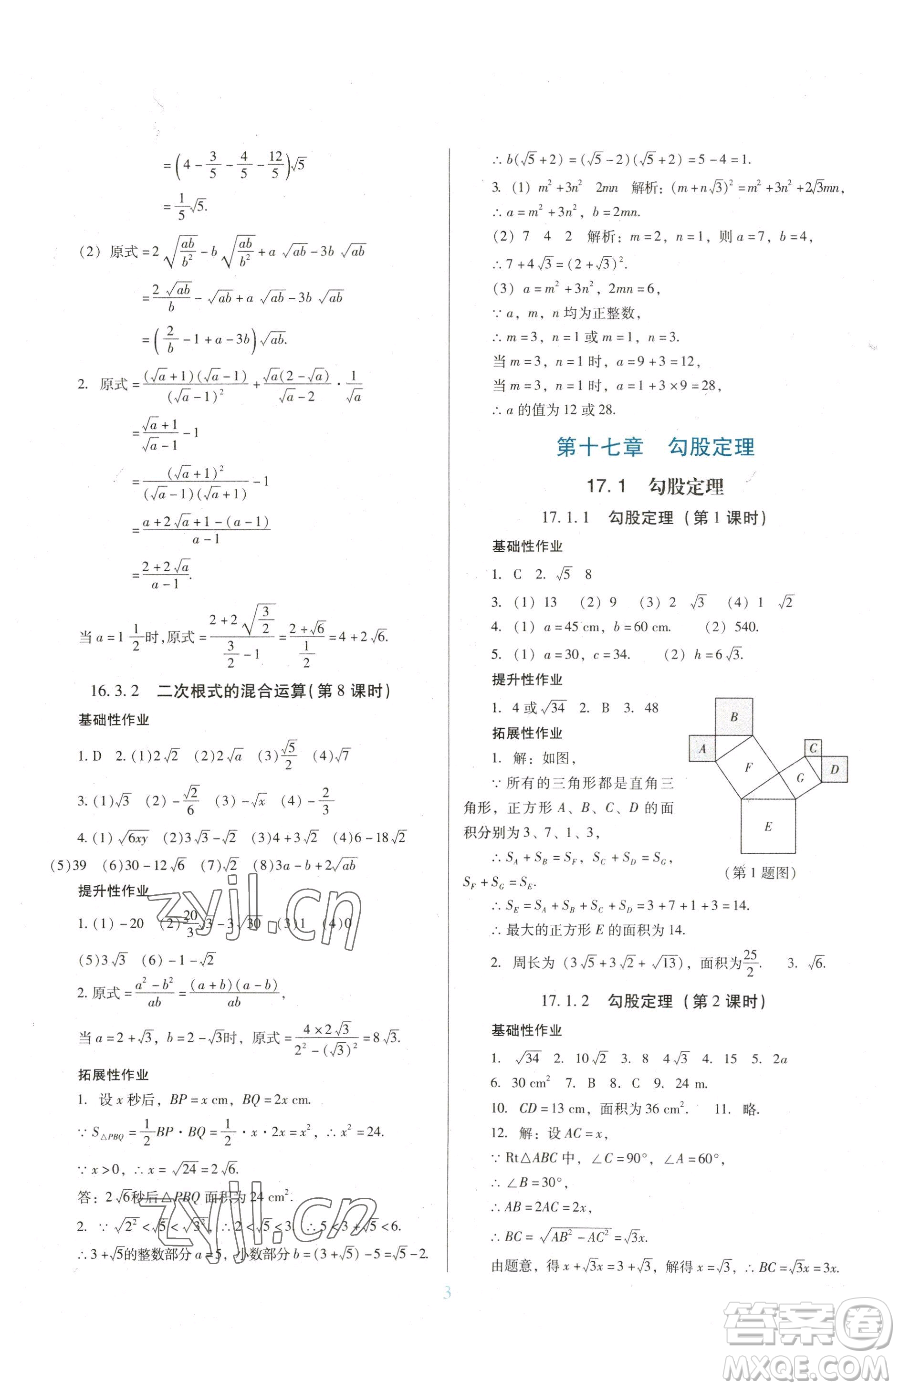 =(4-3/5-4/5-12/5)√5
=1/5√5.
(2) 原式=2√(ab/b²)-b√(ab/b²)+a√ab-3b√ab
=2√ab/b-√ab+a√ab-3b√ab
=(2/b-1+a-3b)√ab.
2. 原式=(√a+1)(√a-1)/(√a-1)²+√a(2-√a)/(√a-2)·1/√a
=(√a+1)/(√a-1)-1
=(√a+1)²/((√a-1)(√a+1))-1
=(a+2√a+1-(a-1))/(a-1)
=(2+2√a)/(a-1).
当 a=1 1/2时,原式=(2+2√(3/2))/(3/2-1)=(2+√6)/(1/2)=4+2√6.
16.3.2 二次根式的混合运算(第 8 课时)
基础性作业
1. D 2. (1)2√2 (2)2√a (3)√5/2 (4)√7
3. (1)√3 (2)-√2/6 (3)-√x (4)-2/3
4. (1) √6xy (2)3√3-√2 (3)4+3√2 (4)6-18√2
(5)39 (6)30-12√6 (7)√2 (8)3a-b+2√ab
提升性作业
1. (1)-20 (2)20/3√3-3√30 (3)1 (4)0
(5)3√3 (6)-1-√2
2. 原式=(a²-b²)/ab=(a+b)(a-b)/ab,
当 a=2+√3, b=2-√3时, 原式=(4×2√3)/(2²-(√3)²)=8√3.
拓展性作业
1. 设 x 秒后, BP=x cm, BQ=2x cm.
∵S△PBQ=1/2BP·BQ=1/2·x·2x=x², ∴x²=24.
∵x>0, ∴x=√24=2√6.
答: 2√6秒后△PBQ 面积为 24 cm².
2. ∵√2²<√5<√3², ∴2<√5<3 ∴5<3+√5<6.
∴3+√5的整数部分 a=5, 小数部分 b=(3+√5)-5=√5-2.
∴b(√5+2)=(√5-2)(√5+2)=5-4=1.
3. (1) m²+3n² 2mn 解析: (m+n√3)²=m²+3n²+2√3mn,
∴a=m²+3n², b=2mn.
(2) 7 4 2 解析: m=2, n=1, 则 a=7, b=4,
∴7+4√3=(2+√3)².
(3) a=m²+3n², 2mn=6,
∵a, m, n 均为正整数,
∴m=3, n=1 或 m=1, n=3.
当 m=3, n=1 时, a=9+3=12,
当 m=1, n=3 时, a=1+3×9=28,
∴a 的值为 12 或 28.
第十七章 勾股定理
17.1 勾股定理
17.1.1 勾股定理 (第 1 课时)
基础性作业
1. C 2. √5 8
3. (1) 13 (2) 9 (3) 2√3 (4) 1
4. (1) a=45 cm, b=60 cm. (2) 540.
5. (1) a=30, c=34. (2) h=6√3.
提升性作业
1. 4 或√34 2. B 3. 48
拓展性作业
1. 解: 如图,
∵所有的三角形都是直角三
角形, 正方形 A、B、C、D 的面
积分别为 3、7、1、3,
∴S_A+S_B=S_F, S_C+S_D=S_G,
S_F+S_G=S_E.
B
A
F
C
D
G
E
(第 1 题图)
∴S_E=S_A+S_B+S_C+S_D=3+7+1+3=14.
∴最大的正方形 E 的面积为 14.
2. 周长为 (3√5+3√2+√13), 面积为25/2. 3. √6.
17.1.2 勾股定理 (第 2 课时)
基础性作业
1. √34 2. 10√2 3. 8 4. √3 5. 2a
6. 30 cm² 7. B 8. C 9. 24 m.
10. CD=13 cm, 面积为 36 cm². 11. 略.
12. 解: 设 AC=x,
∵Rt△ABC 中, ∠C=90°, ∠A=60°,
∴∠B=30°,
∴AB=2AC=2x,
∴BC=√(AB²-AC²)=√3x,
由题意, 得 x+√3x=3+√3, 解得 x=√3, ∴BC=√3x=3x.
3
zyjl.cn
zyjl.cn
答案圈
MXQE.COM